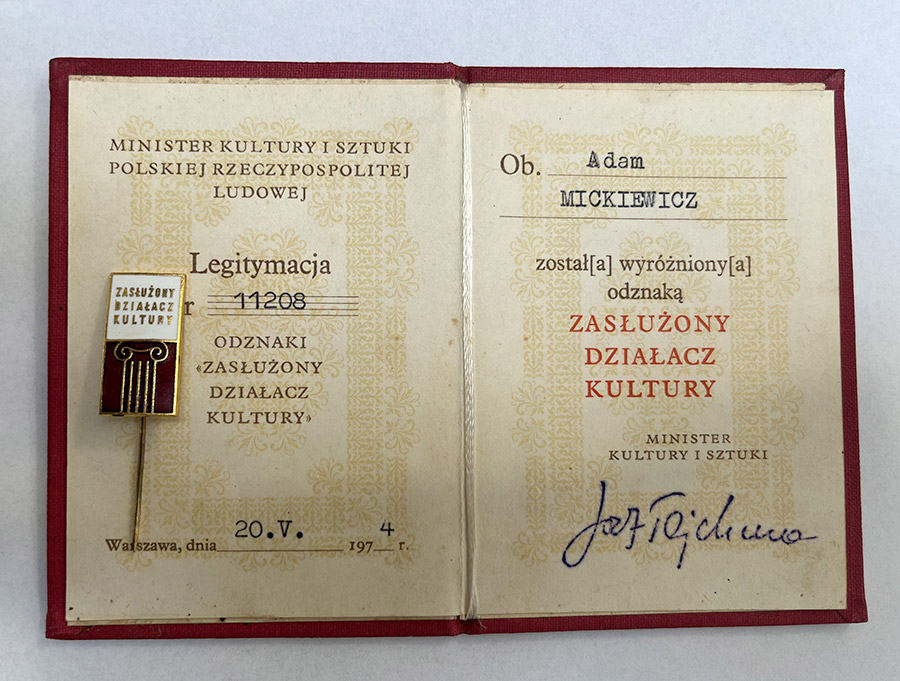 MINISTER KULTURY I SZTUKI
POLSKIEJ RZECZYPOSPOLITEJ
LUDOWEJ
Legitymacja
r 11208
ODZNAKI
«ZASŁUŻONY
DZIAŁACZ
KULTURY»
Warszawa, dnia 20.V. 1974 r.
ZASŁUŻONY
DZIAŁACZ
KULTURY
Ob. Adam
MICKIEWICZ
został[a] wyróżniony[a]
odznaką
ZASŁUŻONY
DZIAŁACZ
KULTURY
MINISTER
KULTURY I SZTUKI